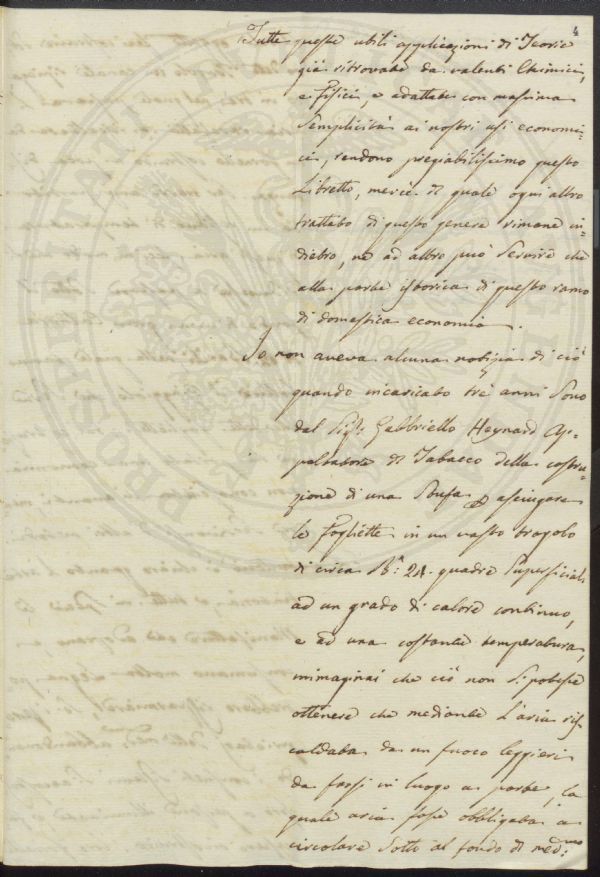 4
Tutte queste utili applicazioni di Teorie
già ritrovate da valenti Chimici,
e Fisici, e adattate con massima
Semplicità ai nostri usi economi=
ci, rendono pregiabilissimo questo
Libretto, mercè il quale ogni altro
trattato di questo genere rimane in=
dietro, nè ad altro può servire che
alla parte istorica di questo ramo
di domestica economia.
Io non aveva alcuna notizia di ciò
quando incaricato tre anni sono
dal Sigr: Gabbriello Heynard Ap=
paltatore di Tabacco della costru=
zione di una Stufa p asciugare
le Fogliette in un vasto tragolo
di circa Ba: 24. quadre Superficiali
ad un grado di calore continuo,
e ad una costante temperatura,
immaginai che ciò non si potesse
ottenere che mediante l'aria ris=
caldata da un fuoco leggieri
da farsi in luogo a parte, la
quale aria fosse obbligata a
circolare sotto al fondo di med:mo
PROSPER